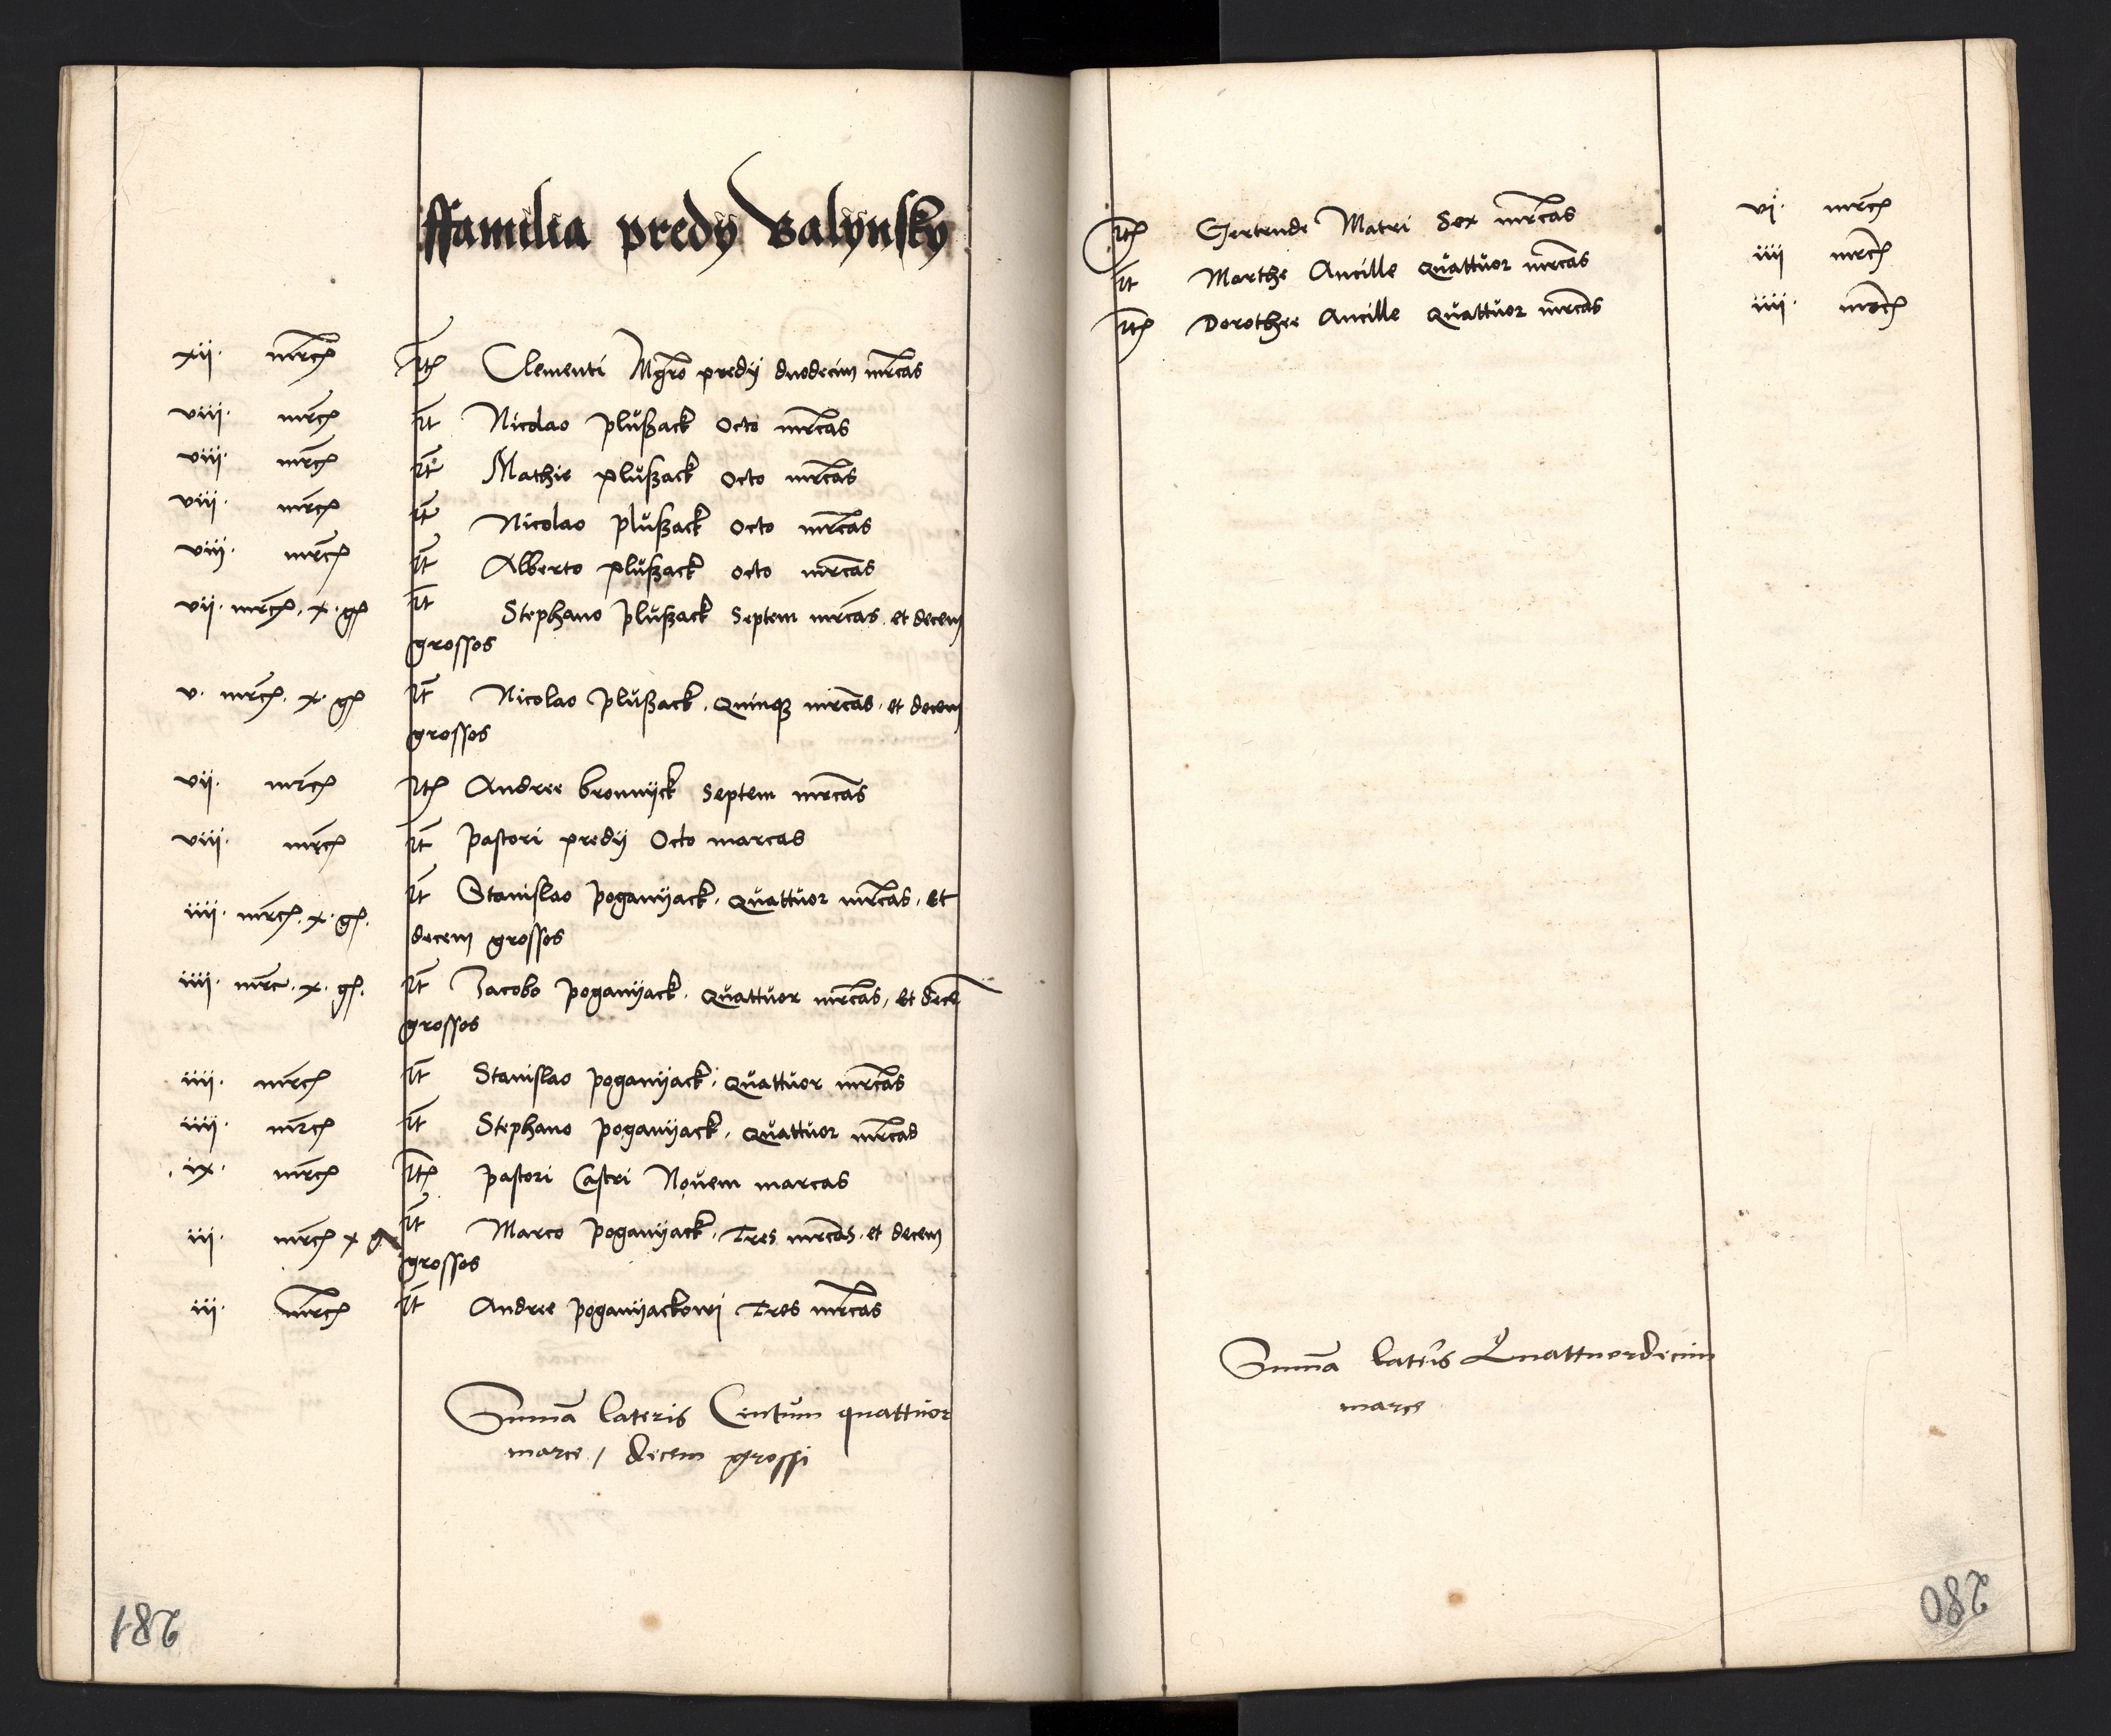 ffamilia predÿ Balÿnskÿ
xii. mrcẹ Itẹ Clementi Mgro predÿ duodecim mrcas
viii. mrcẹ It Nicolao plŭßack Octo mrcas
viii. mrcẹ It Mathie plŭßack Octo mrcas
viii. mrcẹ It Nicolao plŭßack Octo mrcas
viii. mrcẹ It Alberto plŭßack octo mrcas
vii. mrcẹ. x. gẹ It Stephano plŭßack Septem mrcas. et decem
grossos
v. mrcẹ. x. gẹ It Nicolao plŭßack. Quinqꝫ mrcas. et decem
grossos
vii. mrcẹ Itẹ Andree bronnÿck Septem mrcas
viii. mrcẹ It pastori predÿ Octo marcas
iiii. mrcẹ. x. gẹ. It Stanislao poganÿack. Quattŭor mrcas. et
decem grossos
iiii. mrc. x. gẹ. It Jacobo poganÿack. Quattŭor mrcas, et decē
grossos
iiii. mrcẹ It Stanislao poganÿack. Quattŭor mrcas
iiii. mrcẹ It Stephano poganÿack. Quattŭor mrcas
.ix. mrcẹ Itẹ pastori Castri Noŭem marcas
iii. mrcẹ x g It Marco poganÿack. Tres mrcas. et decem
grossos
iii. mrcẹ It Andree poganÿackowi Tres mrcas
Suma lateris Centum quattuor
marce / decem grossi
281
Itẹ Gertrude Matri Sex mrcas vi. mrcẹ
It Marthe Ancille Quattŭor mrcas iiii mrcẹ
Itẹ Dorothee Ancille Quattŭor mrcas iiii. mrcẹ
Suma lateris Quattuordecim
marce
280